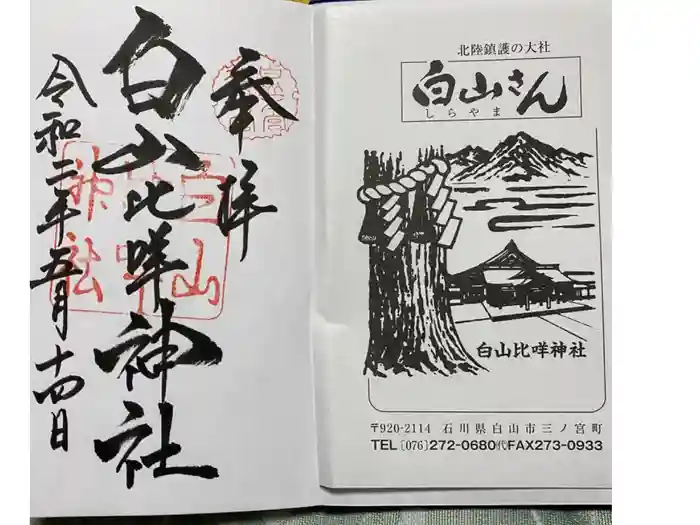 奉拝
白山比咩神社
令和二年五月十四日
白山
神社
北陸鎮護の大社
白山さん
しらやま
白山比咩神社
〒920-2114 石川県白山市三ノ宮町
TEL〔076〕272-0680㈹FAX273-0933